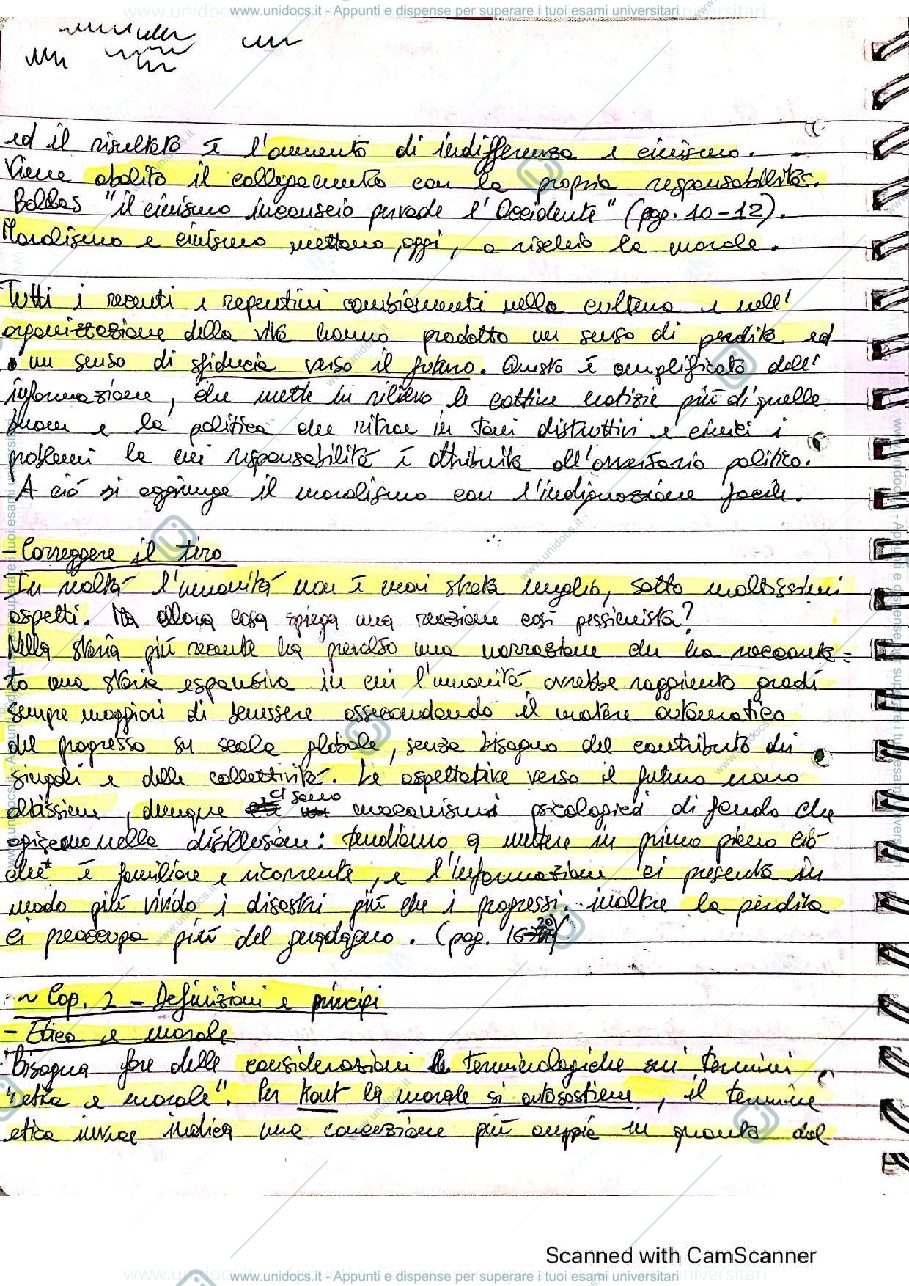 www.unidocs.it - Appunti e dispense per superare i tuoi esami universitari
ed il risultato è l'aumento di indifferenza e cinismo.
Viene abolito il collegamento con la propria responsabilità.
Bollas "il cinismo inconscio pervade l'Occidente" (pag. 10-12).
Moralismo e cinismo mettono, oggi, a rischio la morale.
Tutti i recenti e repentini cambiamenti nella cultura e nell'
organizzazione della vita hanno prodotto un senso di perdita ed
un senso di sfiducia verso il futuro. Questo è amplificato dall'
informazione, che mette in rilievo le cattive notizie più di quelle
buone e la politica che ritrae in toni distruttivi e cinici i
problemi la cui responsabilità è attribuita all'avversario politico.
A ciò si aggiunge il moralismo con l'indignazione facile.
- Correggere il tiro
In realtà l'umanità non è mai stata meglio, sotto moltissimi
aspetti. Ma allora cosa spiega una reazione così pessimista?
Nella storia più recente ha prevalso una narrazione che ha raccont-
to una storia espansiva in cui l'umanità avrebbe raggiunto gradi
sempre maggiori di benessere assecondando il motore automatico
del progresso su scala globale, senza bisogno del contributo dei
singoli e delle collettività. Le aspettative verso il futuro erano
altissime, dunque ci sono meccanismi psicologici di fondo che
agiscono nella disillusione: tendiamo a mettere in primo piano ciò
che è familiare e ricorrente, e l'informazione ci presenta in
modo più vivido i disastri più che i progressi. inoltre la perdita
ci preoccupa più del guadagno. (pag. 16
~ Cap. 2 - Definizioni e principi
- Etica e morale
Bisogna fare delle considerazioni terminologiche sui termini
"etica e morale". Per Kant la morale si autosostiene, il termine
etica invece indica una concezione più ampia in quanto dal
Scanned with CamScanner
www.unidocs.it - Appunti e dispense per superare i tuoi esami universitari